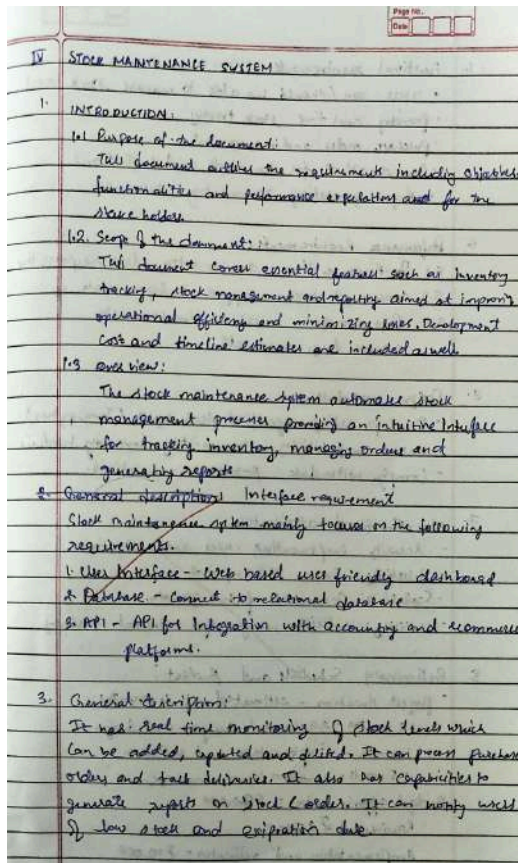 Page No.
Date
IV STOCK MAINTENANCE SYSTEM
1. INTRODUCTION:
1.1 Purpose of the document:
This document outlines the requirements including objectives
functionalities and performance expectations and for the
stake holders
1.2. Scope of the document:
This document covers essential features such as Inventory
tracking, stock management and reporting aimed at improving
operational efficiency and minimizing loses. Development
cost and timeline estimates are included as well
1.3 over view:
The stock maintenance system automates stock
management processes providing an intuitive Interface
for tracking inventory, managing orders and
generating reports
2. General description: Interface requirement
Stock maintenance system mainly focuses on the following
requirements.
1. User Interface - Web based user friendly dashboard
2. Database - Connect to relational database
3. API - API for Integration with accounting and ecommerce
platforms.
3. General description:
It has real time monitoring of stock levels which
can be added, updated and deleted. It can process purchase
orders and track deliveries. It also has capabilities to
generate reports on stock & order. It can notify users
of low stock and expiration date.